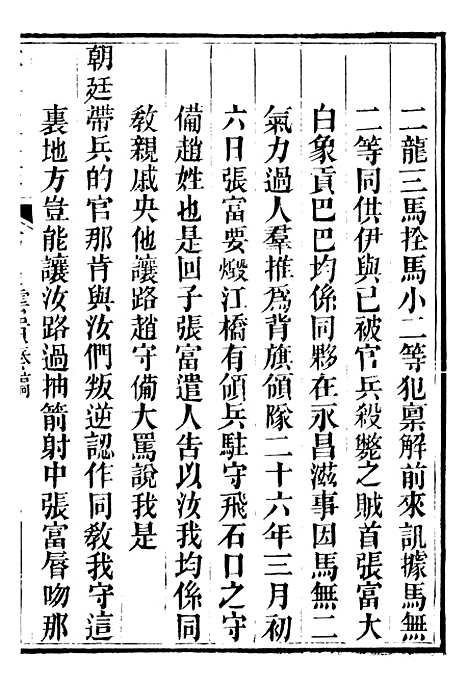 二龍三馬拴馬小二等犯稟解前來訊據馬無
二等同供伊與已被官兵殺斃之賊首張富大
白象貢巴巴均係同夥在永昌滋事因馬無二
氣力過人羣推爲背旗領隊二十六年三月初
六日張富要燬江橋有領兵駐守飛石口之守
備趙姓也是回子張富遣人告以汝我均係同
敎親戚央他讓路趙守備大罵說我是
朝廷帶兵的官那肯與汝們叛逆認作同敎我守這
裏地方豈能讓汝路過抽箭射中張富脣吻那